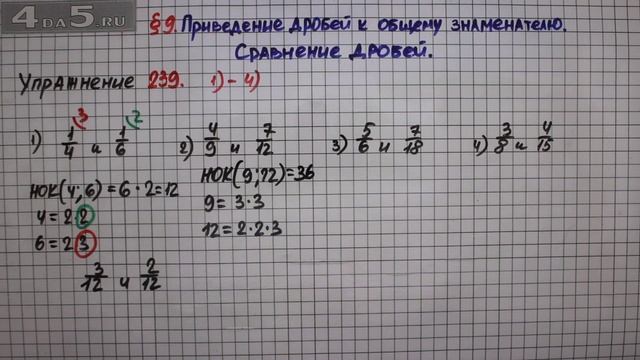 4DA5.RU
§ 9. Приведение дробей к общему знаменателю.
Сравнение дробей.
Упражнение 239. 1)-4)
3 2
1) 1/4 и 1/6 2) 4/9 и 7/12 3) 5/6 и 7/18 4) 3/8 и 4/15
НОК(4;6)=6·2=12 НОК(9;12)=36
4=2·2 9=3·3
6=2·3 12=2·2·3
3/12 и 2/12